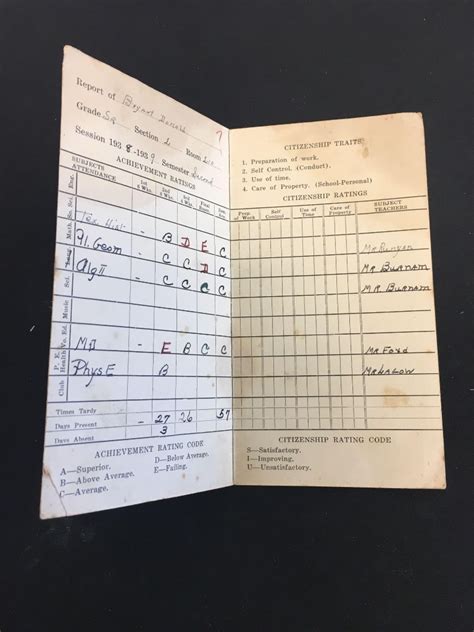 Report of Bryant Donald
Grade Sq Section 2 Room
Session 193 8-193 9 Semester Second
ACHIEVEMENT RATINGS
SUBJECTS
ATTENDANCE
1st 6 Wks. 2nd 6 Wks. Final Exam. Sem. Ave.
Tex Hist - B D E C
Pl. Geom - C C D C
Alg II - C C C C
MJ - E B C C
Phys E B
Eng.
So. Sc.
Math
Lang.
Sci.
Music
Vo. Ed.
P. E. Health
Club
Times Tardy
Days Present - 27 26 57
Days Absent 3
ACHIEVEMENT RATING CODE
A—Superior. D—Below Average.
B—Above Average. E—Failing.
C—Average.
7
CITIZENSHIP TRAITS
1. Preparation of work.
2. Self Control. (Conduct).
3. Use of time.
4. Care of Property. (School-Personal)
CITIZENSHIP RATINGS
Prep. of Work Self Control Use of Time Care of Property SUBJECT TEACHERS
Mr Runyan
MR. BURNAM
MR. BURNAM
MR FORD
MR LAGOW
CITIZENSHIP RATING CODE
S—Satisfactory.
I—Improving.
U—Unsatisfactory.